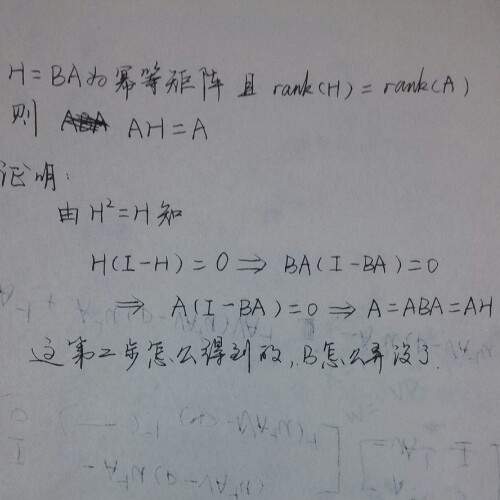 H = BA为幂等矩阵 且 rank(H) = rank(A)
则 AH = A
证明:
由 H² = H 知
H(I-H) = 0 ⇒ BA(I-BA) = 0
⇒ A(I-BA) = 0 ⇒ A = ABA = AH
这第二步怎么得到的, B怎么弄没了.